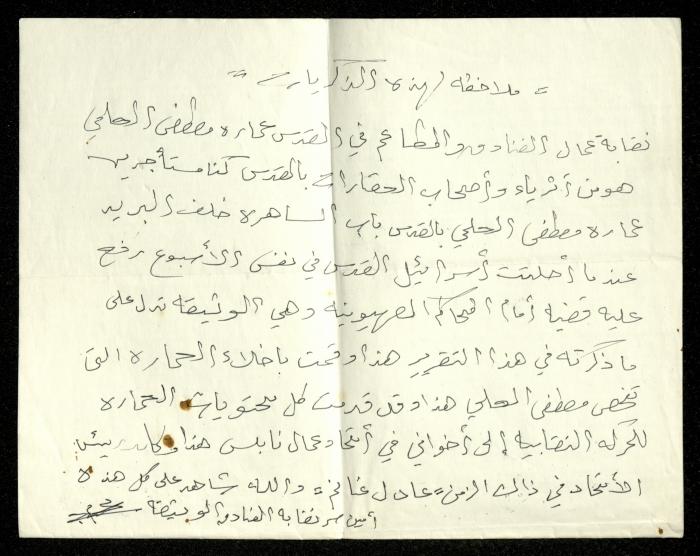 = ملاحظه لهذه الذكريات =
نقابة عمال الفنادق والمطاعم في القدس عماره مصطفى الحلمي
هو من أثرياء وأصحاب العقارات بالقدس كنا مستأجرين
عماره مصطفى الحلمي بالقدس باب الساهره خلف البريد
عندما أحلتت أسرائيل القدس في نفس الأسبوع رفع
عليه قضيه أمام المحاكم الصهيونيه وهي الوثيقه تدل على
ما ذكرته في هذا التقرير هذا وقمت باخلاء العماره التي
تخص مصطفى الحلمي هذا وقد قدمت كل محتويات العماره
للحركه النقابيه إلى أخواني في أتحاد عمال نابلس هذا وكان رئيس
الأتحاد في ذالك الزمن = عادل غانم = والله شاهد على كل هذه
أمين سر نقابة الفنادق الوثيقة